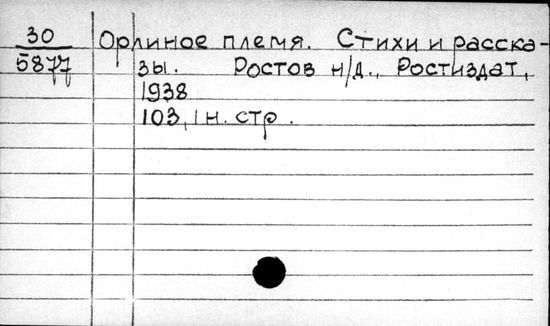 30 Орлиное племя. Стихи и расска-
5877 зы. Ростов н/Д., Ростиздат,
1938
103, 1 н. стр.